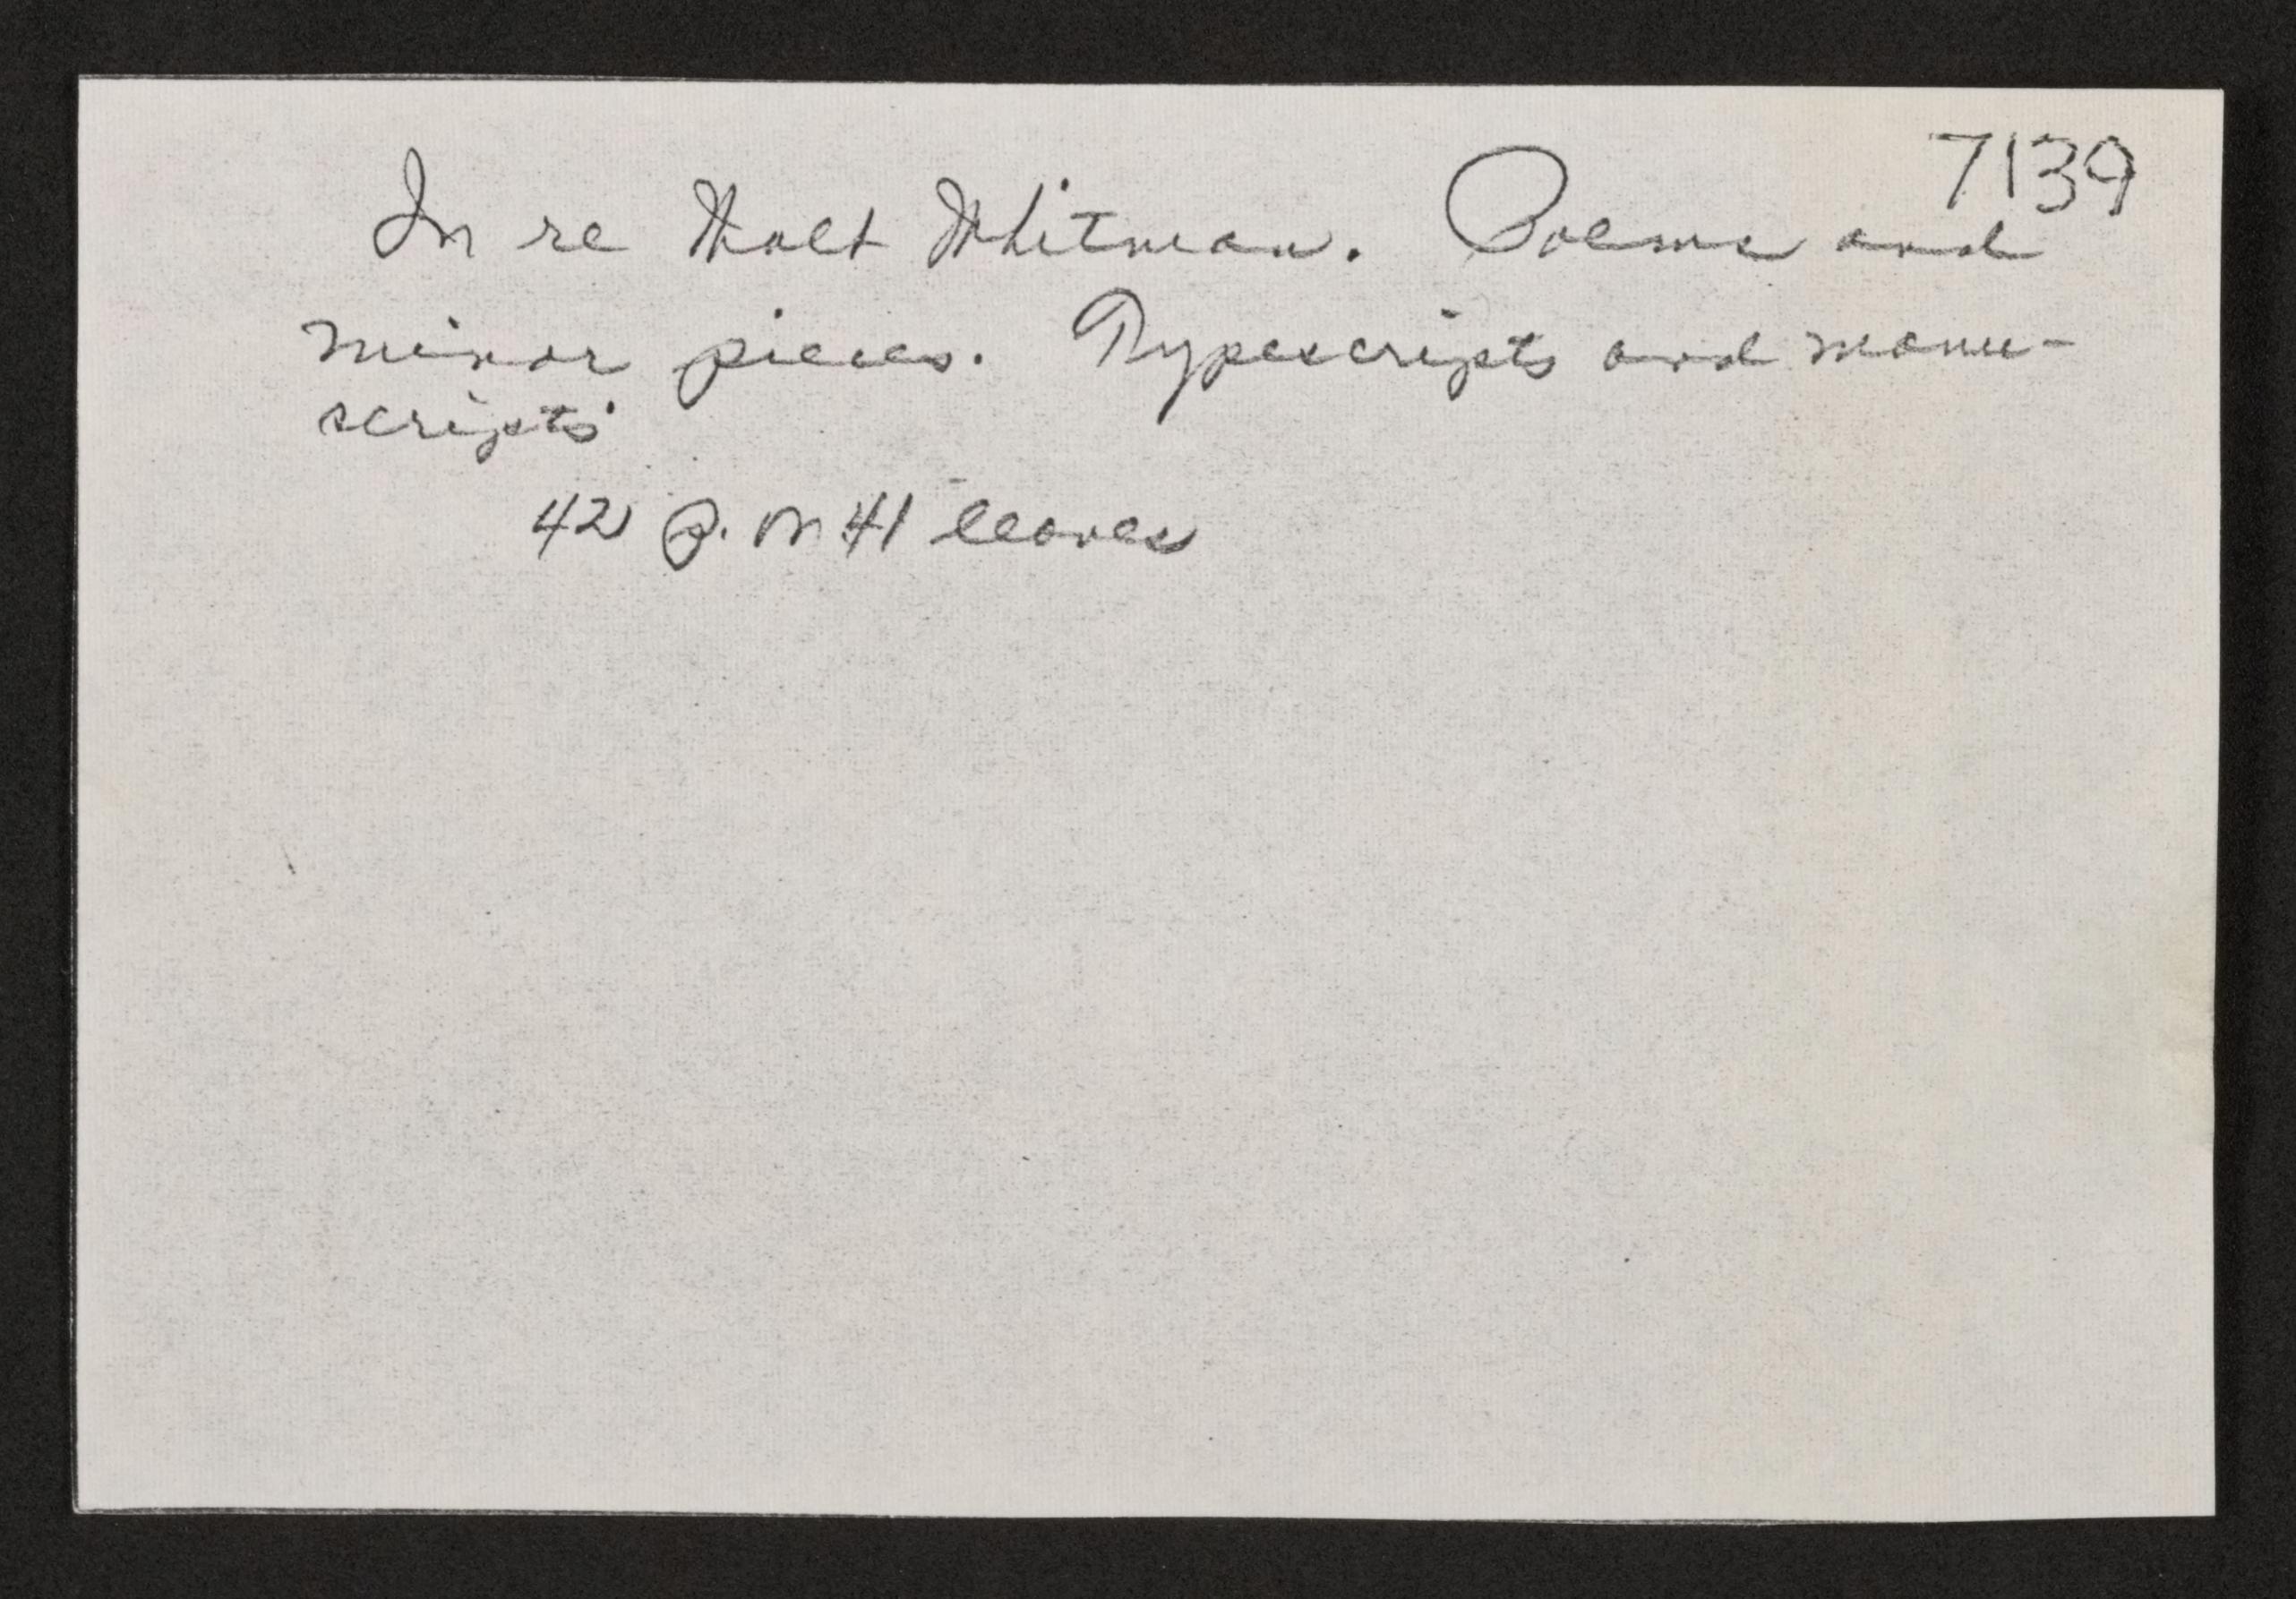 7139
In re Walt Whitman. Poems and
minor pieces. Typescripts and manu-
scripts
42 p. on 41 leaves